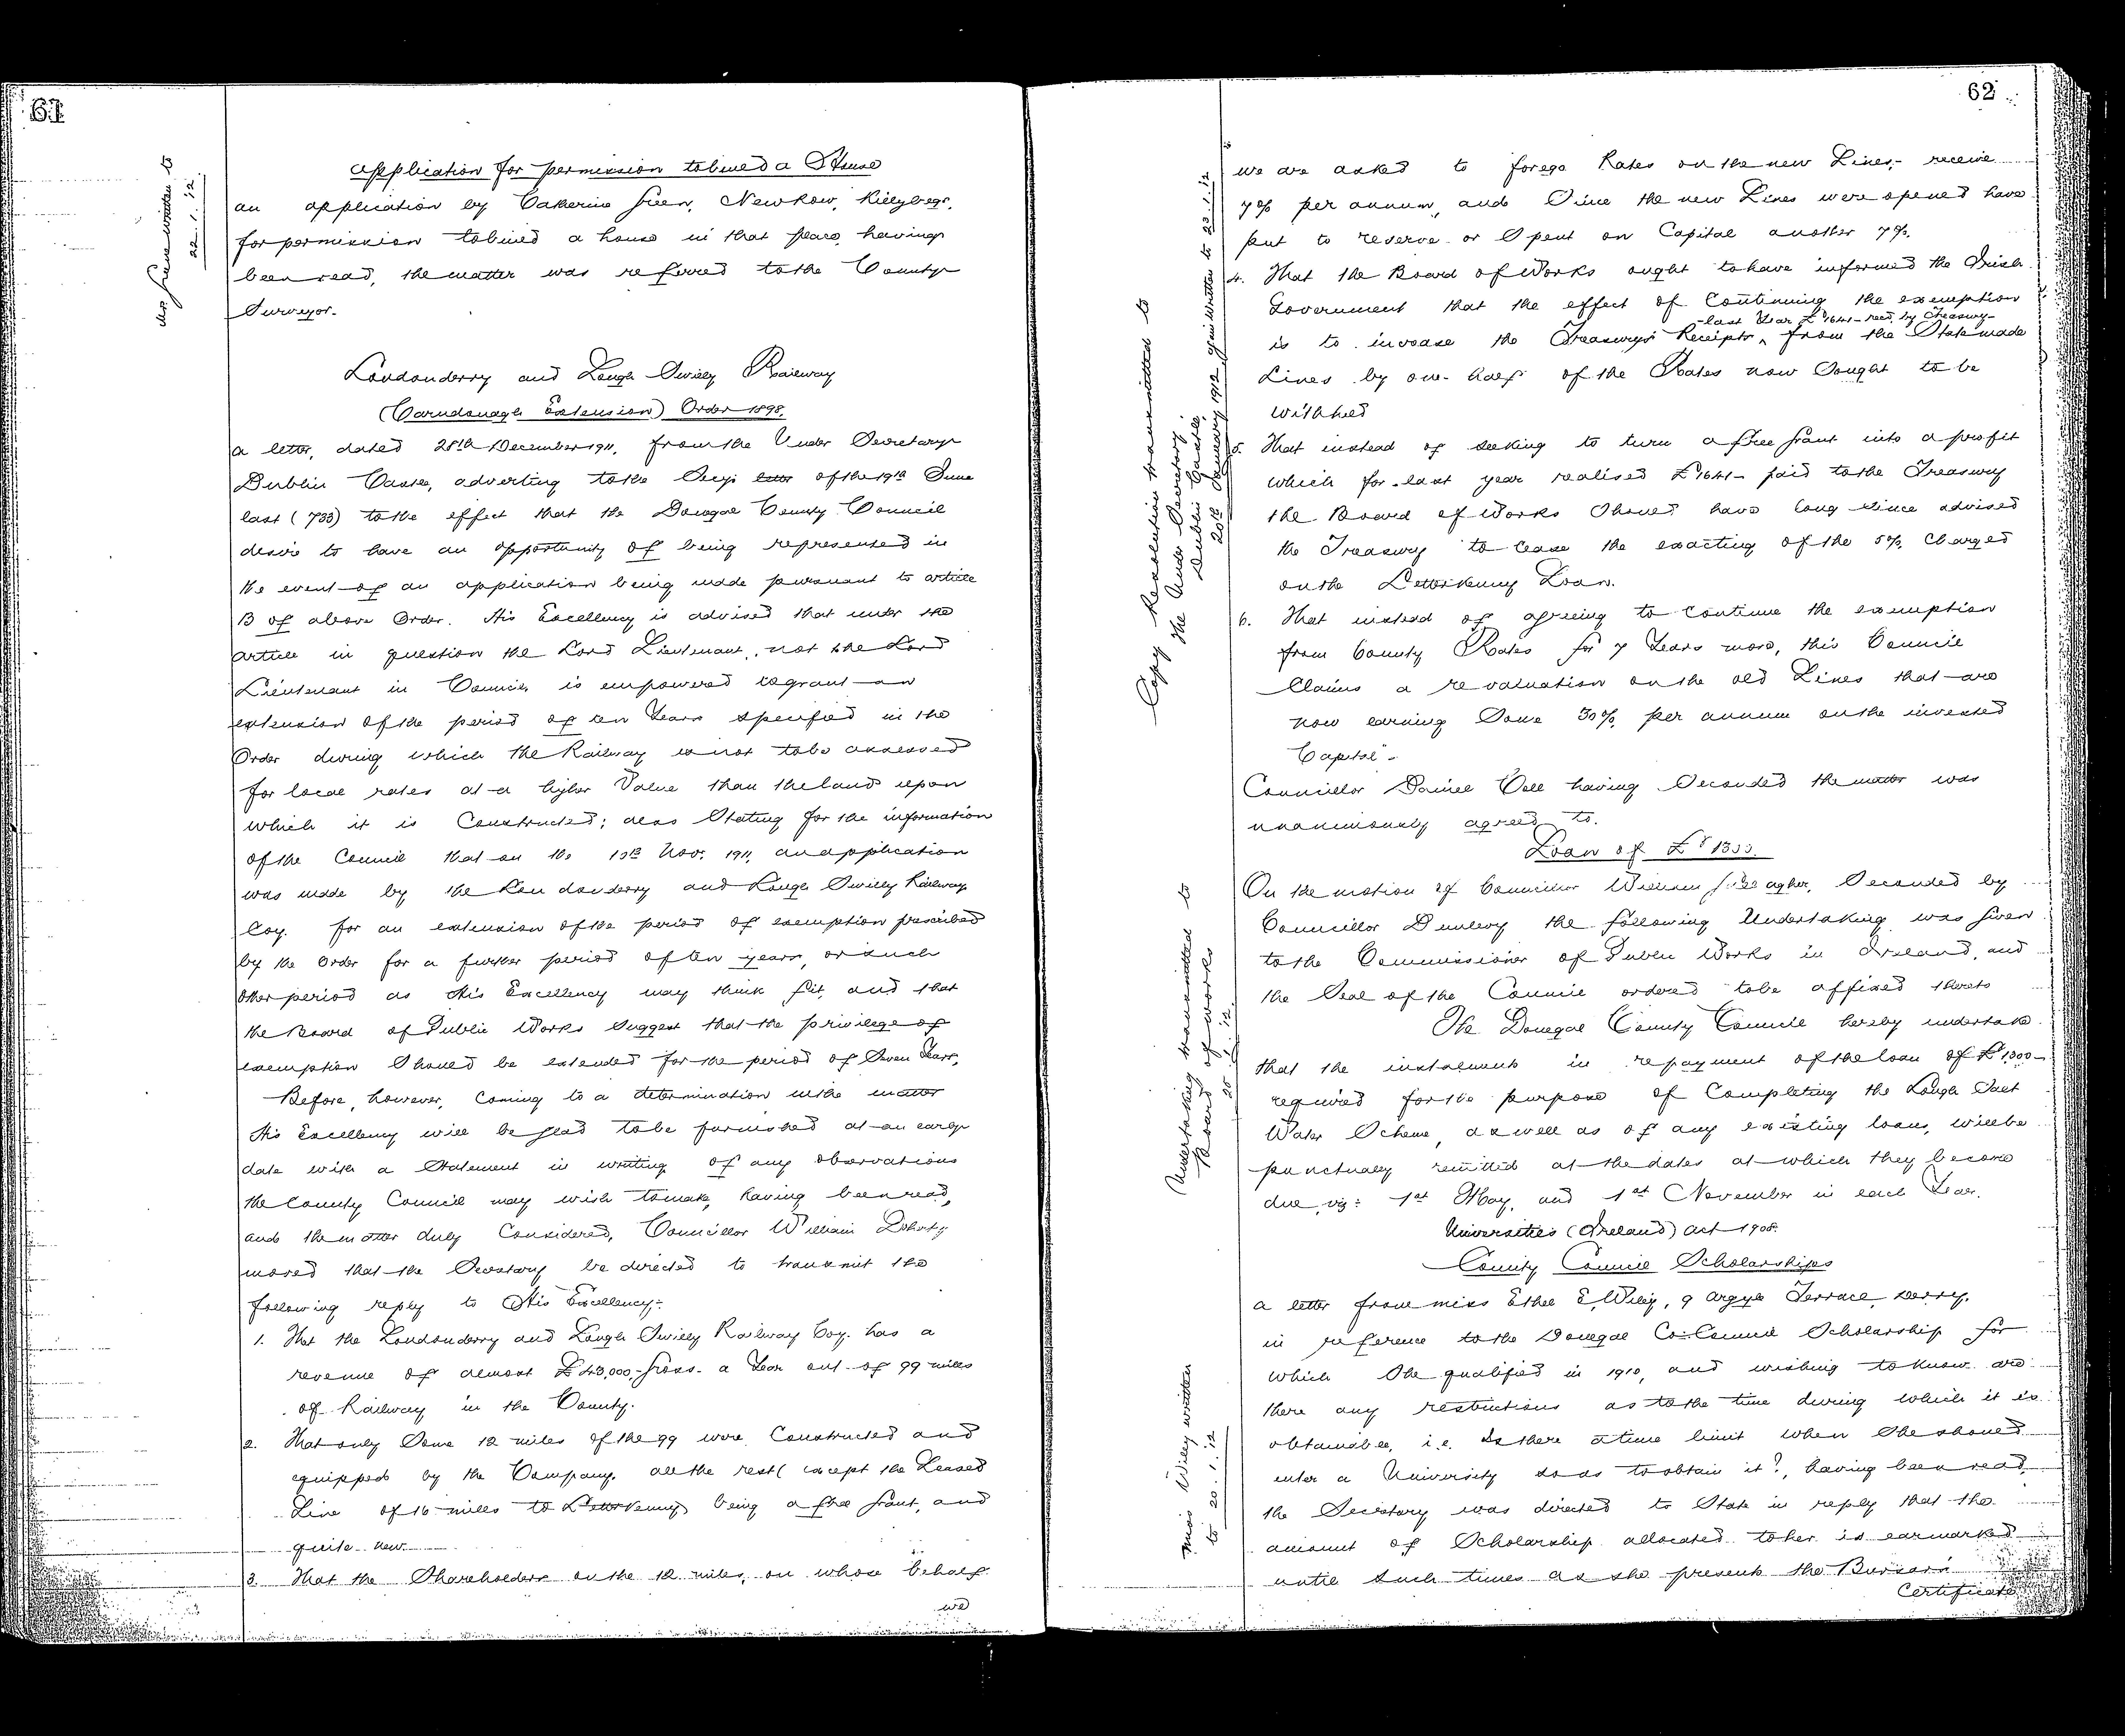 61
Mrs Green written to
22.1.12
Application for permission to build a House
An application by Catherine Green, New Row, Killybegs,
for permission to build a house in that place, having
been read, the matter was referred to the County
Surveyor.
Londonderry and Lough Swilly Railway
(Carndonagh Extension) Order 1898.
A letter, dated 28th December 1911, from the Under Secretary
Dublin Castle, adverting to the Secy's letter of the 19th June
last (733) to the effect that the Donegal County Council
desire to have an opportunity of being represented in
the event of an application being made pursuant to article
13 of above Order. His Excellency is advised that under the
article in question the Lord Lieutenant, not the Lord
Lieutenant in Council, is empowered to grant an
extension of the period of ten Years specified in the
Order during which the Railway is not to be assessed
for local rates at a higher Value than the land upon
which it is Constructed; also Stating for the information
of the Council that on the 10th Nov. 1911, an application
was made by the Londonderry and Lough Swilly Railway
Coy. for an extension of the period of exemption prescribed
by the Order for a further period of ten years, or such
other period as His Excellency may think fit, and that
the Board of Public Works Suggest that the privilege of
exemption Should be extended for the period of Seven Years.
Before, however, Coming to a determination in the matter
His Excellency will be glad to be furnished at an early
date with a Statement in writing of any observations
the County Council may wish to make, having been read,
and the matter duly Considered, Councillor William Doherty
moved that the Secretary be directed to transmit the
following reply to His Excellency:-
1. That the Londonderry and Lough Swilly Railway Coy. has a
revenue of almost £43,000,- gross - a Year out of 99 miles
of Railway in the County.
2. That only Some 12 miles of the 99 were Constructed and
equipped by the Company, all the rest (except the Leased
Line of 16 miles to Letterkenny) being a free Grant, and
quite new.
3. That the Shareholders on the 12 miles, on whose behalf
we
62
Copy Resolution transmitted to
the Under Secretary
Dublin Castle,
20th January 1912
written to 22.1.12
we are asked to forego Rates on the new Lines,- receive
7% per annum, and Since the new Lines were opened have
put to reserve or Spent on Capital another 7%.
4. That the Board of Works ought to have informed the Irish
Government that the effect of Continuing the exemption
-last Year £1641- recd. by Treasury-
is to increase the Treasury's Receipts, from the State made
Lines by one-half of the Rates now Sought to be
withheld
5. That instead of seeking to turn a free Grant into a profit
which for last year realised £1641- paid to the Treasury
the Board of Works Should have long since advised
the Treasury to cease the exacting of the 5% Charged
on the Letterkenny Loan.
6. That instead of agreeing to Continue the exemption
from County Rates for 7 Years more, this Council
Claims a revaluation on the old Lines that are
now earning Some 30% per annum on the invested
Capital".
Councillor Daniel Coll having Seconded the matter was
unanimously agreed to.
Undertaking transmitted to
Board of Works
20.1.12
Loan of £1300.
On the motion of Councillor William Gallagher, Seconded by
Councillor Dunlevy the following Undertaking was given
to the Commissioners of Public Works in Ireland, and
the Seal of the Council ordered to be affixed thereto
The Donegal County Council hereby undertake
that the instalments in repayment of the loan of £1300-
required for the purpose of Completing the Lough Salt
Water Scheme, as well as of any existing loans, will be
punctually remitted at the dates at which they become
due, viz: 1st May, and 1st November in each Year.
Universities (Ireland) Act 1908.
County Council Scholarships
Miss Wiley written
to 20.1.12
A letter from Miss Ethel E. Wiley, 9 Argyle Terrace, Derry,
in reference to the Donegal Co: Council Scholarship for
which She qualified in 1910, and wishing to know are
there any restrictions as to the time during which it is
obtainable, i.e. Is there a time limit when She should
enter a University so as to obtain it?, having been read,
the Secretary was directed to State in reply that the
amount of Scholarship allocated to her is earmarked
until such times as she presents the Bursar's
Certificate